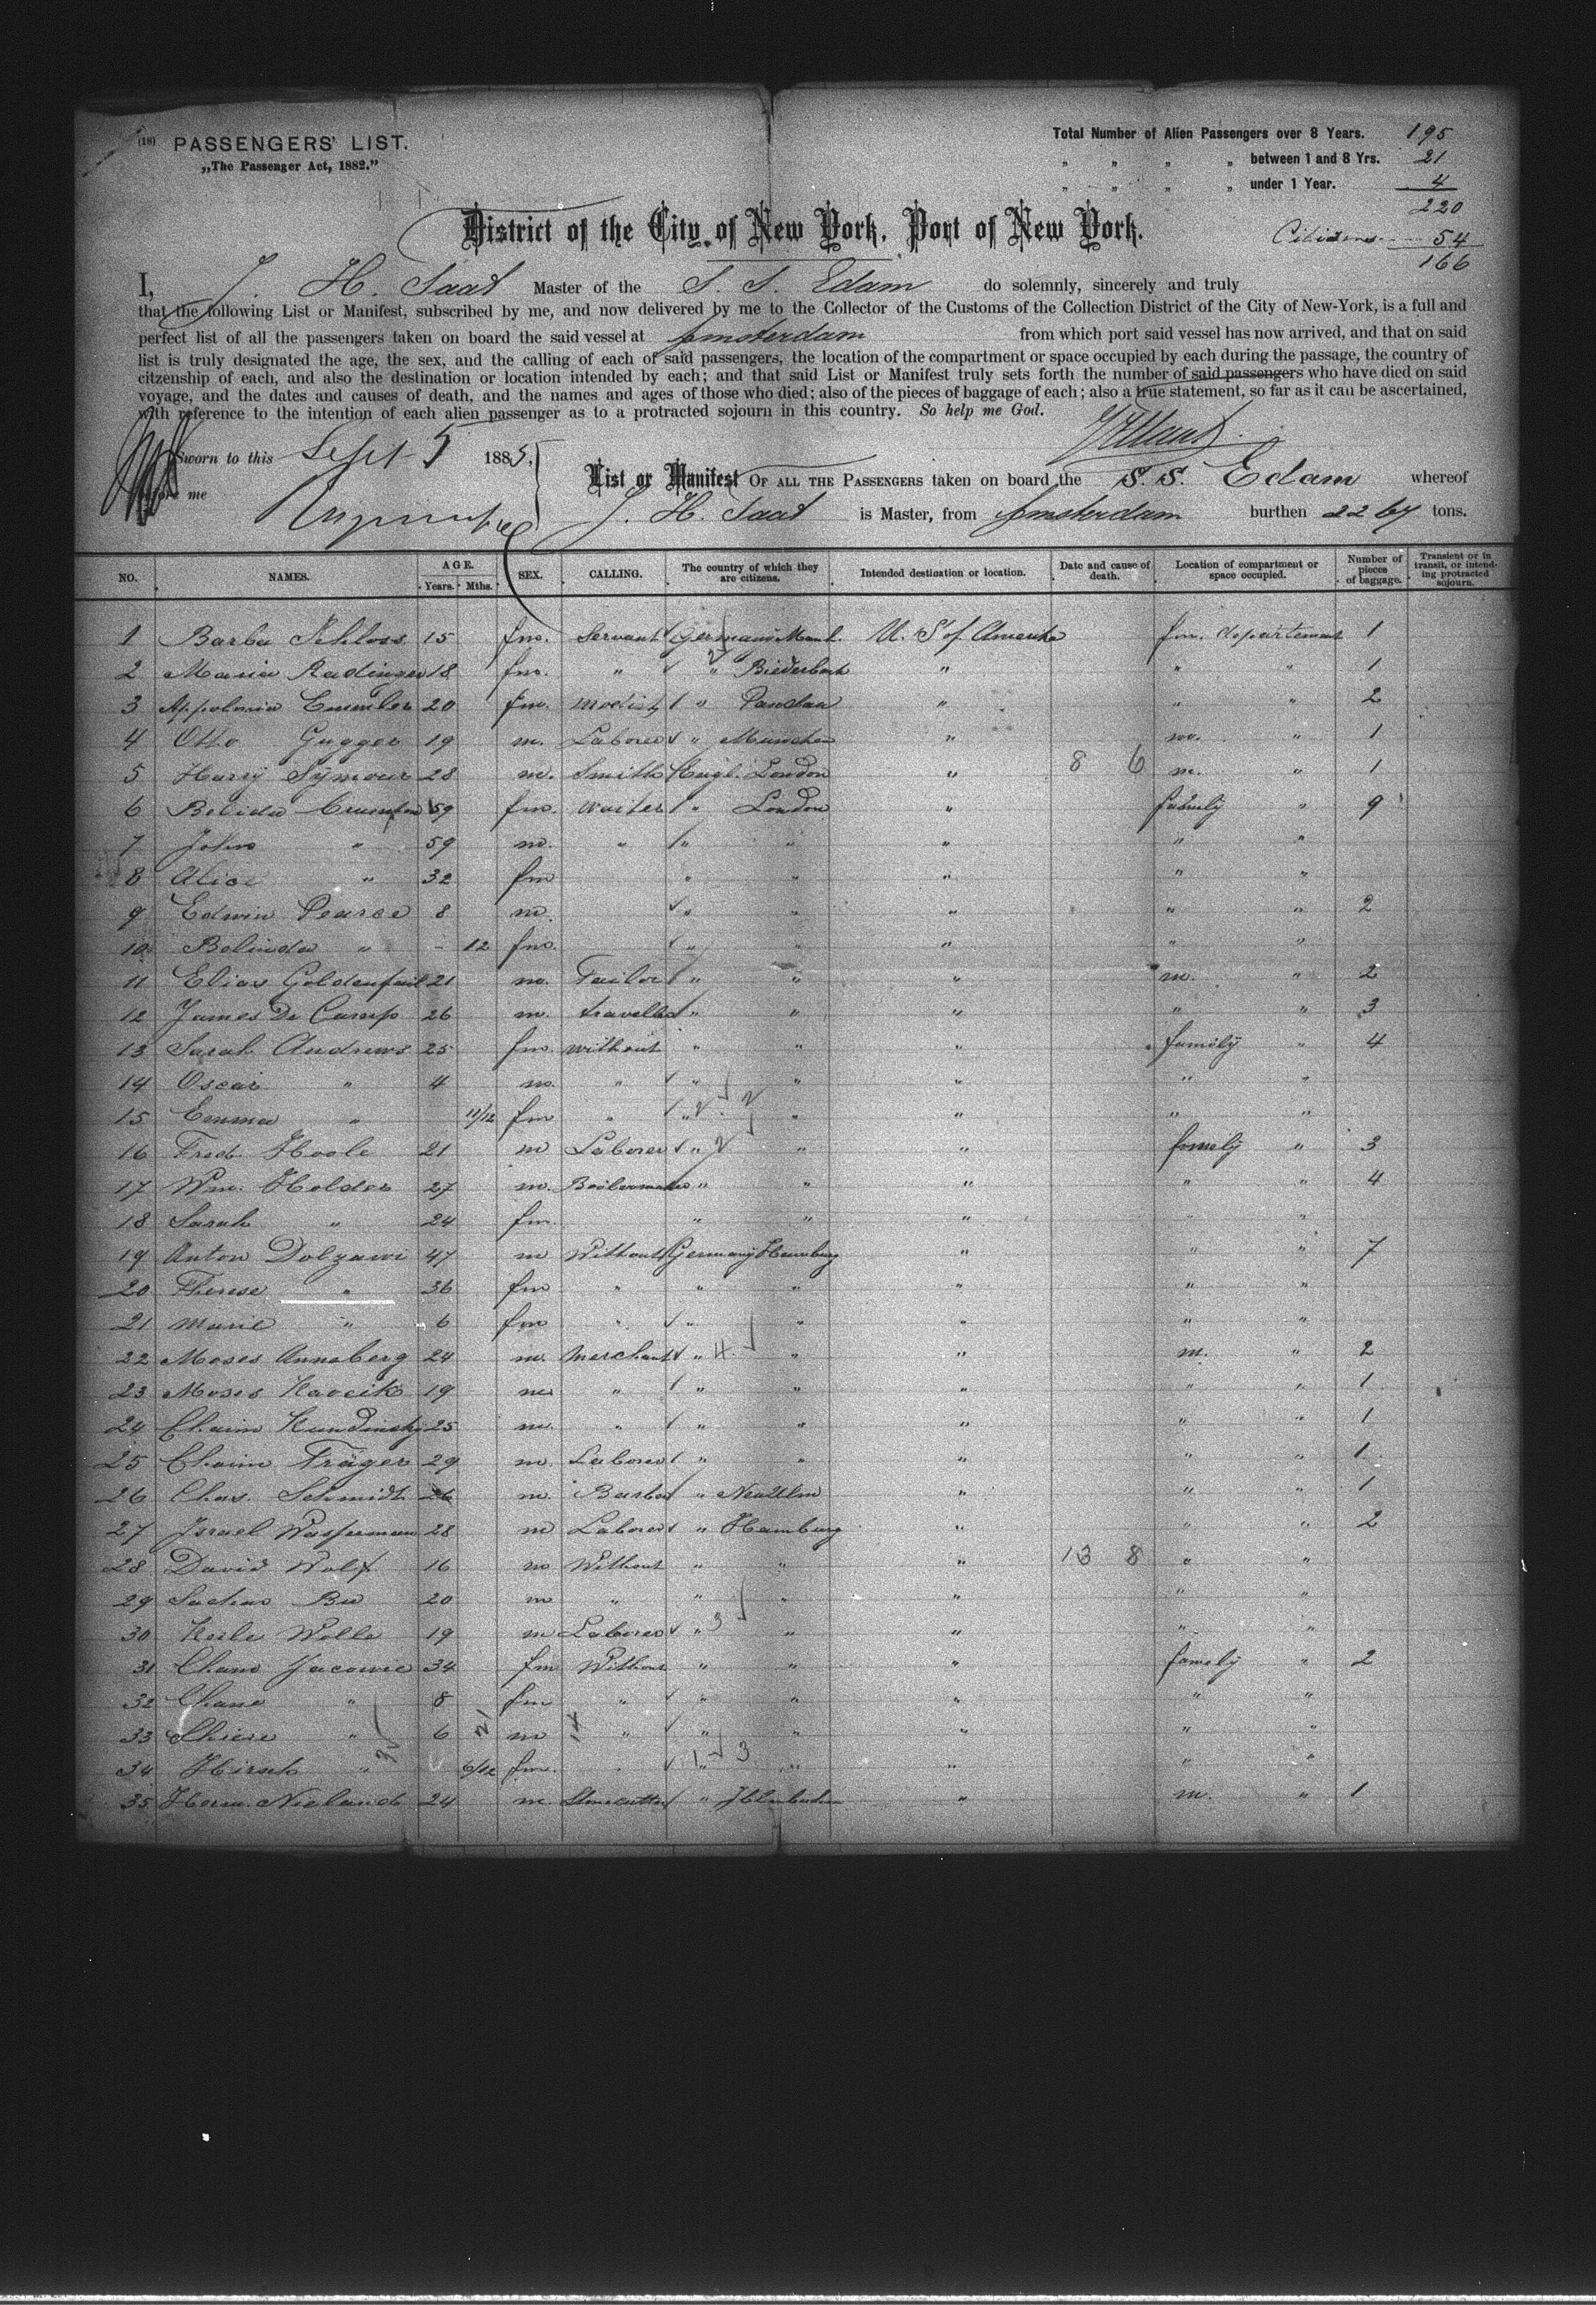 (18) PASSENGERS' LIST.
„The Passenger Act, 1882."
Total Number of Alien Passengers over 8 Years. 195
„ „ „ „ between 1 and 8 Yrs. 21
„ „ „ „ under 1 Year. 4
220
Citizens 54
166
District of the City of New York, Port of New York.
I, J. H. Saat Master of the S. S. Edam do solemnly, sincerely and truly
that the following List or Manifest, subscribed by me, and now delivered by me to the Collector of the Customs of the Collection District of the City of New-York, is a full and
perfect list of all the passengers taken on board the said vessel at Amsterdam from which port said vessel has now arrived, and that on said
list is truly designated the age, the sex, and the calling of each of said passengers, the location of the compartment or space occupied by each during the passage, the country of
citzenship of each, and also the destination or location intended by each; and that said List or Manifest truly sets forth the number of said passengers who have died on said
voyage, and the dates and causes of death, and the names and ages of those who died; also of the pieces of baggage of each; also a true statement, so far as it can be ascertained,
with reference to the intention of each alien passenger as to a protracted sojourn in this country. So help me God.
Sworn to this Sept 5 1885.
before me
List or Manifest OF ALL THE PASSENGERS taken on board the S. S. Edam whereof
J. H. Saat is Master, from Amsterdam burthen 2267 tons.
NO. NAMES. AGE. Years. Mths. SEX. CALLING. The country of which they are citizens. Intended destination or location. Date and cause of death. Location of compartment or space occupied. Number of pieces of baggage. Transient or in transit, or intending protracted sojourn.
1 Barba Schloss 15 fm. Servant U. S of Amerika fm. departement 1
2 Maria Radinger 18 fm. " " Biederbach " " " 1
3 Appolonia 20 fm. modist " " " " 2
4 Otto Gugger 19 m. Laborer " Munchen " m. " 1
5 Harry Symour 28 m. Smith Engl. London " 8 6 m. " 1
6 Belida 59 fm. waiter " London " family " 9
7 John " 59 m. " " " " " "
8 Alice " 32 fm " " " " "
9 Edwin Pearce 8 m. " " " " " 2
10 Belinda " - 12 fm. " " " " "
11 Elias 21 m. Tailor " " " m. " 2
12 James De Camp 26 m. traveller " " " " " 3
13 Sarah Andrews 25 fm. without " " " family " 4
14 Oscar " 4 m. " " " " " "
15 Emma " 11/12 fm " " 2 2 " " " "
16 Fred Hoole 21 m Laborer " 2 " " famely " 3
17 Wm. Holder 27 m. Boilermaker " " " " " 4
18 Sarah " 24 fm. " " " " "
19 Anton Dolzawi 47 m Without Germany Hamburg " " " 7
20 Therese " 36 fm " " " " " "
21 Marie " 6 fm " " " " " "
22 Moses Annaberg 24 m. Merchant " 4. " " m. " 2
23 Moses Kavcik 19 m " " " " " " 1
24 Chaim Kundinsky 25 m. " " " " " " 1
25 Chaim Träger 29 m. Laborer " " " " " 1
26 Chas. Schmidt 26 m. Barber " Neu Ulm " " " 1
27 Israel Wasserman 28 m Laborer " Hamburg " " " 2
28 David Wolf 16 m Without " " " 13 8 " "
29 20 m " " " " " "
30 Wolle 19 m Laborer " 3 " " " "
31 34 fm Without " " " famely " 2
32 Chane " 8 fm " " " " " "
33 " 6 21 m 14 " " " " " "
34 Hirsch " 6/12 fm. " 1 3 " " " " "
35 Herm. Nieland 24 m. " " m. " 1